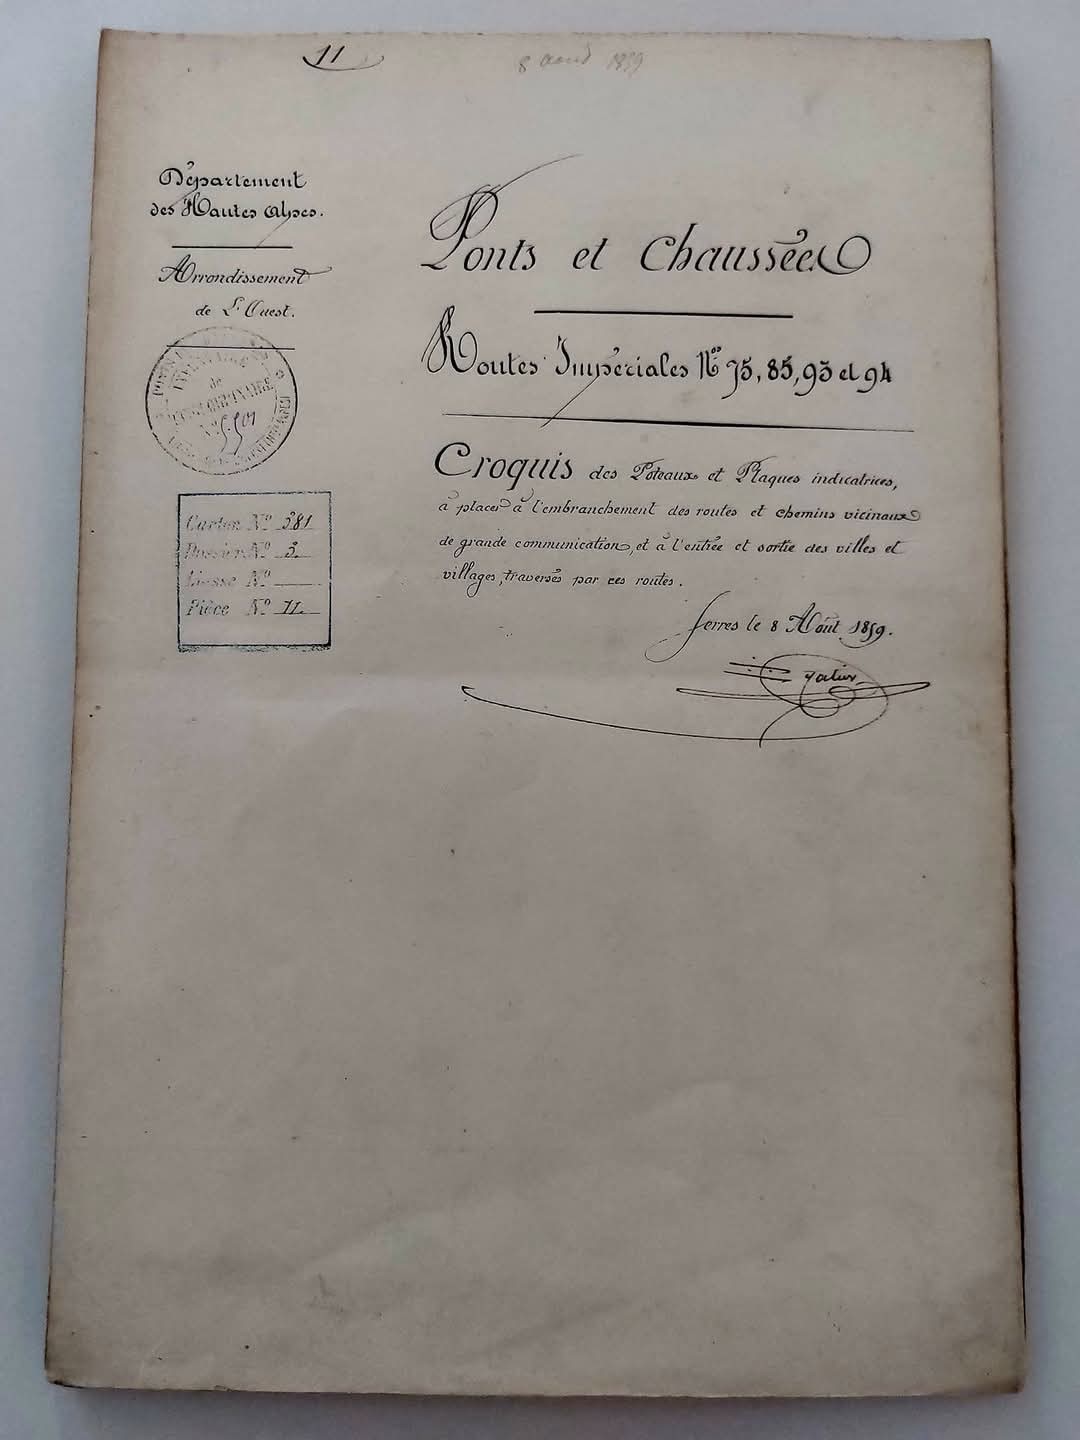 11
8 aout 1859
Département
des Hautes Alpes.
Arrondissement
de L'Ouest.
PONTS
INVENTAIRE
de
N° 5.501
Carton N° 381
Dossier N° 3.
Liasse N°
Pièce N° 11.
Ponts et Chaussées
Routes Impériales Nos 75, 85, 93 et 94
Croquis des Poteaux et Plaques indicatrices,
à placer à l'embranchement des routes et chemins vicinaux
de grande communication, et à l'entrée et sortie des villes et
villages, traversés par ces routes.
Serres le 8 Août 1859.